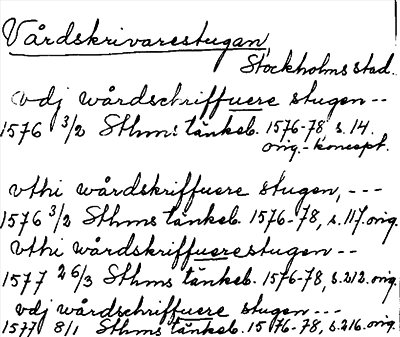 Vårdskrivarestugan,
Stockholms stad.
vdj wårdschriffuere stugen --
1576 3/2 Sthms tänkeb. 1576-78, s. 14.
orig.-koncept.
vthi wårdskriffuere stugen, ---
1576 3/2 Sthms tänkeb. 1576-78, s. 117. orig.
vthi wårdskriffuerestugen --
1577 26/3 Sthms tänkeb. 1576-78, s. 212. orig.
vdj wårdschriffuere stugen --
1577 8/1 Sthms tänkeb. 1576-78, s. 216. orig.